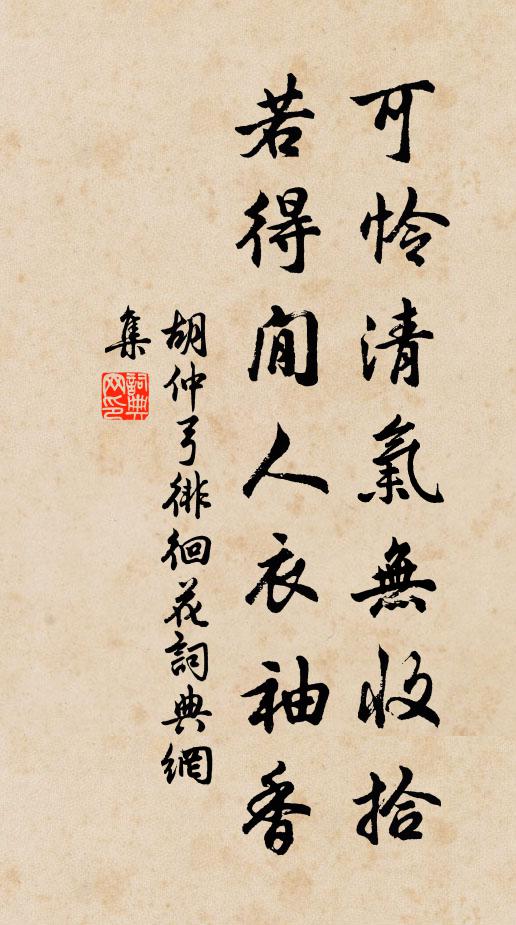 可怜清氣無收拾
若得閒人衣袖香
胡仲弓徘徊花詞典網
集
詞典
网印